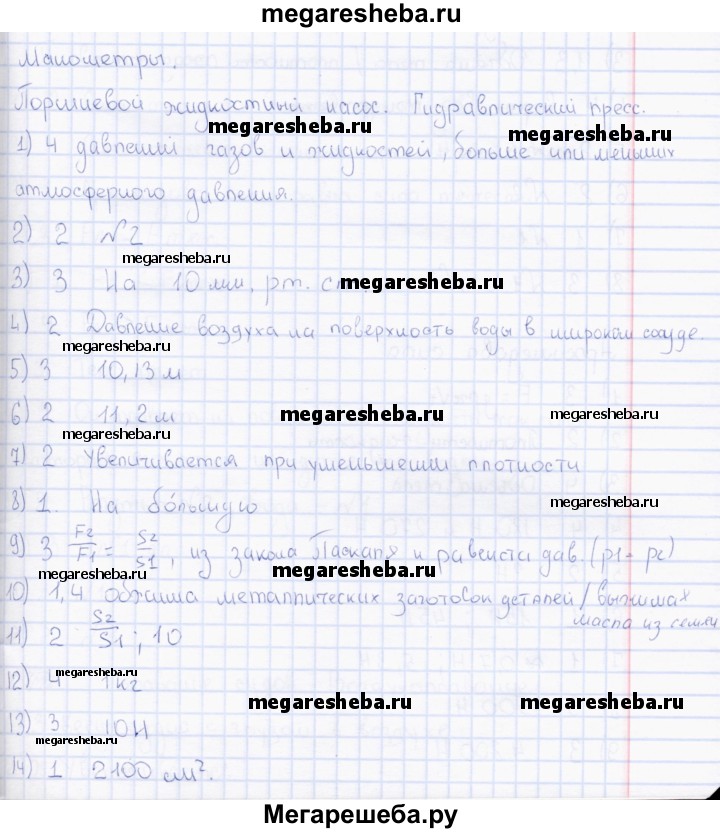 megaresheba.ru
Манометры.
Поршневой жидкостный насос. Гидравлический пресс.
megaresheba.ru
megaresheba.ru
1) 4 давлений газов и жидкостей, больше или меньших
атмосферного давления.
2) 2 №2
megaresheba.ru
3) 3 На 10 мм. рт. ст.
megaresheba.ru
4) 2 Давление воздуха на поверхность воды в широком сосуде.
megaresheba.ru
5) 3 10,13 м
megaresheba.ru
6) 2 11,2 м
megaresheba.ru
megaresheba.ru
megaresheba.ru
7) 2 Увеличивается при уменьшении плотности
8) 1. На бóльшую
megaresheba.ru
9) 3 F2/F1 = S2/S1, из закона Паскаля и равенства дав. (p1 = p2)
megaresheba.ru
megaresheba.ru
10) 1,4 обжима металлических заготовок деталей / выжима
масла из семян
11) 2 S2/S1; 10
megaresheba.ru
12) 4 1 кг
megaresheba.ru
megaresheba.ru
13) 3 10 Н
megaresheba.ru
14) 1 2100 см².
Мегарешеба.ру